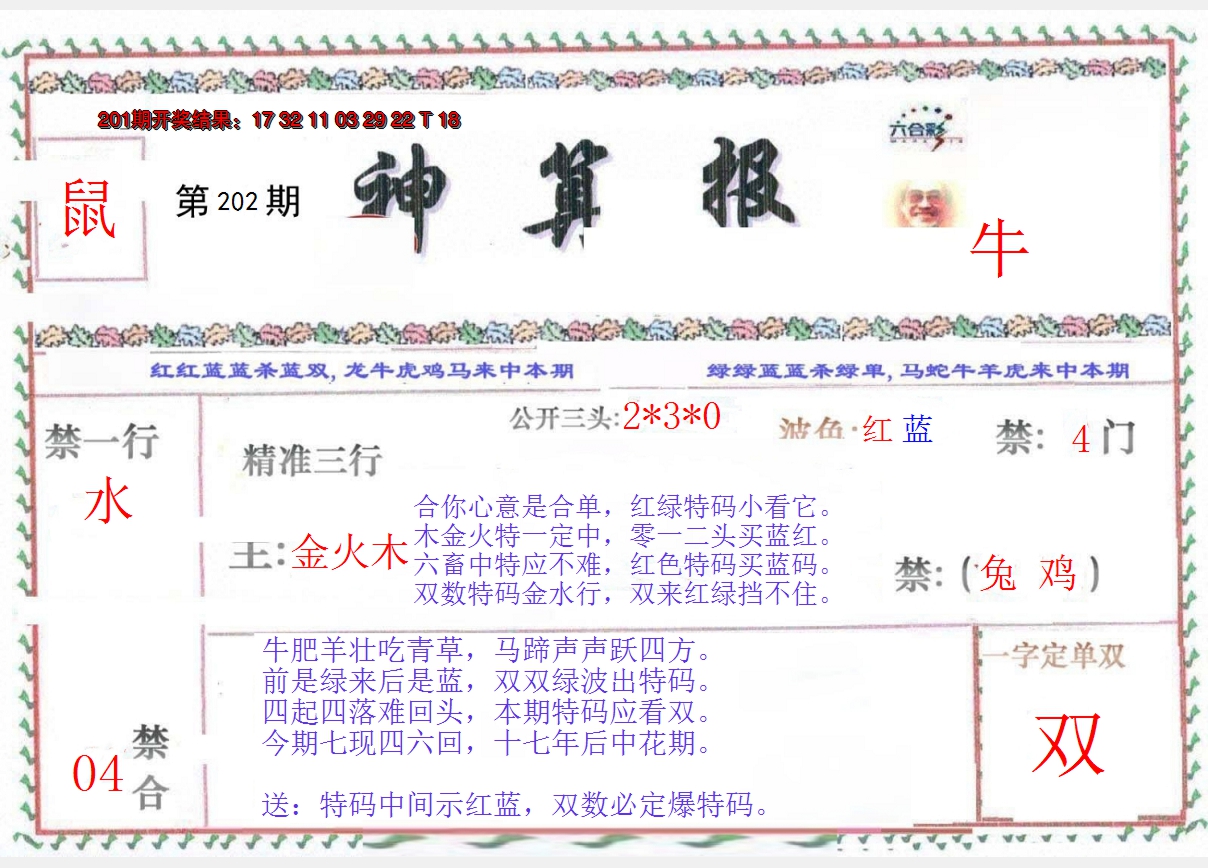 201期开奖结果：17 32 11 03 29 22 T 18
六合彩
鼠
第 202 期
神 算 报
牛
红红蓝蓝杀蓝双, 龙牛虎鸡马来中本期
绿绿蓝蓝杀绿单, 马蛇牛羊虎来中本期
禁一行
水
公开三头:2*3*0
波色:红 蓝
禁: 4 门
精准三行
主:金火木
合你心意是合单，红绿特码小看它。
木金火特一定中，零一二头买蓝红。
六畜中特应不难，红色特码买蓝码。
双数特码金水行，双来红绿挡不住。
禁:（兔 鸡）
牛肥羊壮吃青草，马蹄声声跃四方。
前是绿来后是蓝，双双绿波出特码。
四起四落难回头，本期特码应看双。
今期七现四六回，十七年后中花期。
送：特码中间示红蓝，双数必定爆特码。
禁合
04
一字定单双
双